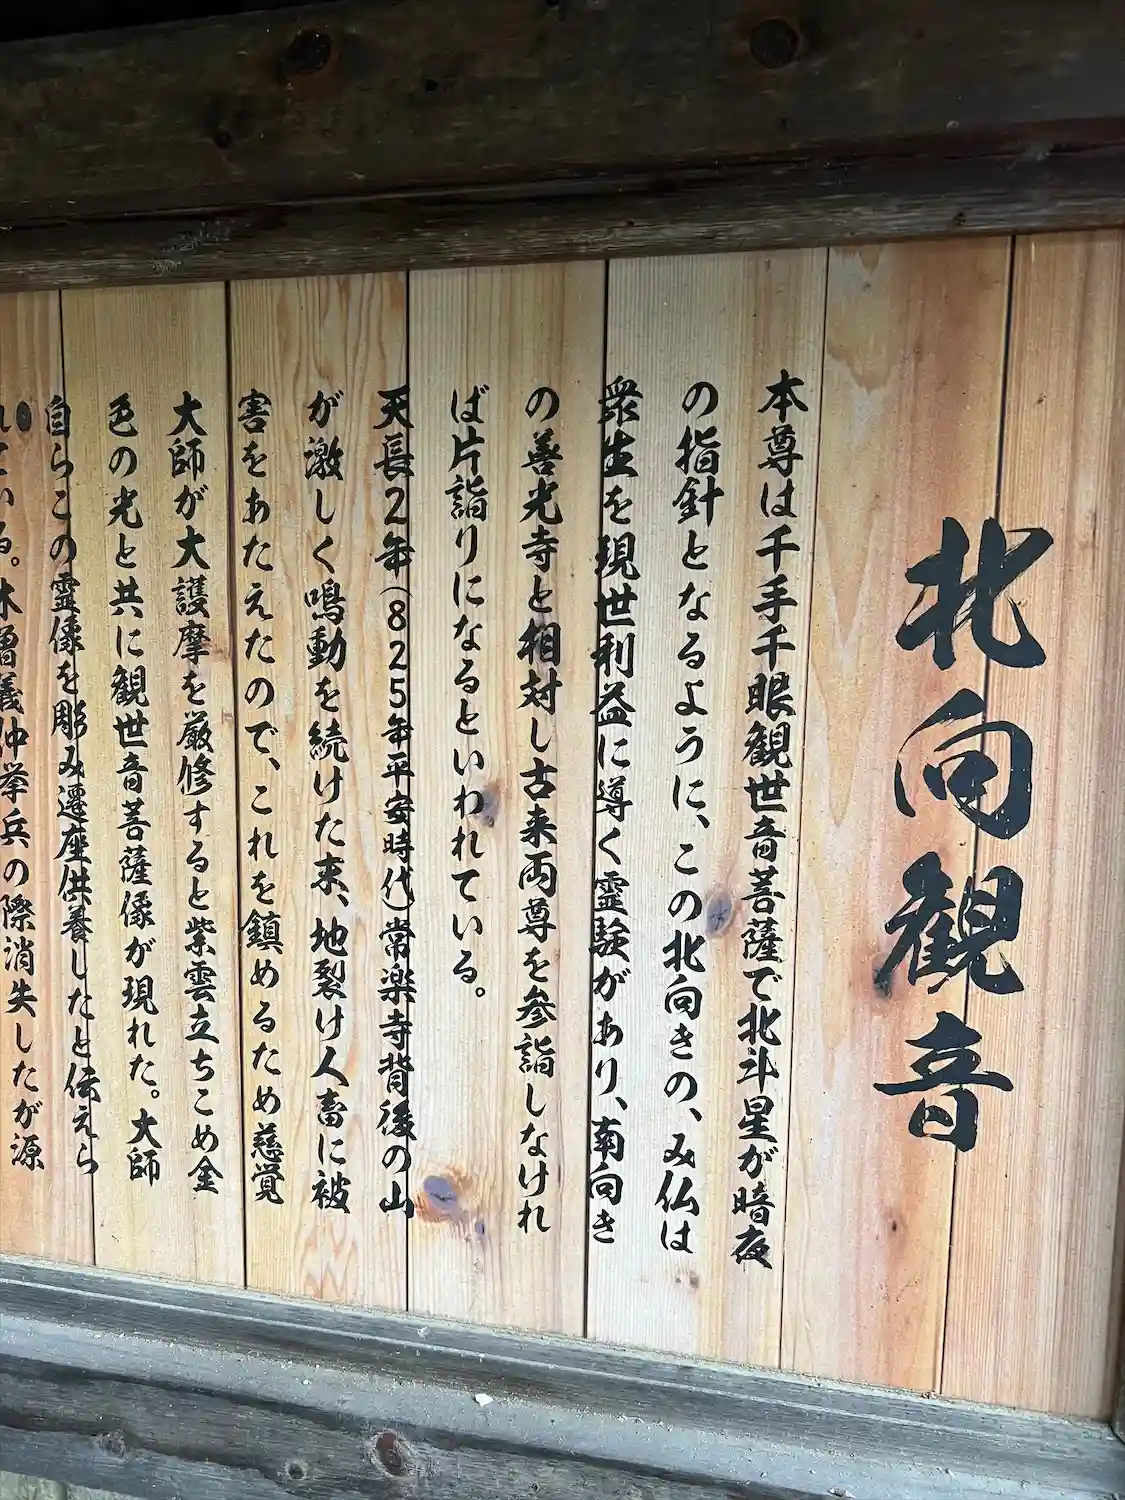 北向観音
本尊は千手千眼観世音菩薩で北斗星が暗夜
の指針となるように、この北向きの、み仏は
衆生を現世利益に導く霊験があり、南向き
の善光寺と相対し古来両尊を参詣しなけれ
ば片詣りになるといわれている。
天長2年(825年平安時代)常楽寺背後の山
が激しく鳴動を続けた末、地裂け人畜に被
害をあたえたので、これを鎮めるため慈覚
大師が大護摩を厳修すると紫雲立ちこめ金
色の光と共に観世音菩薩像が現れた。大師
自らこの霊像を彫み遷座供養したと伝えら
れている。木曽義仲挙兵の際消失したが源